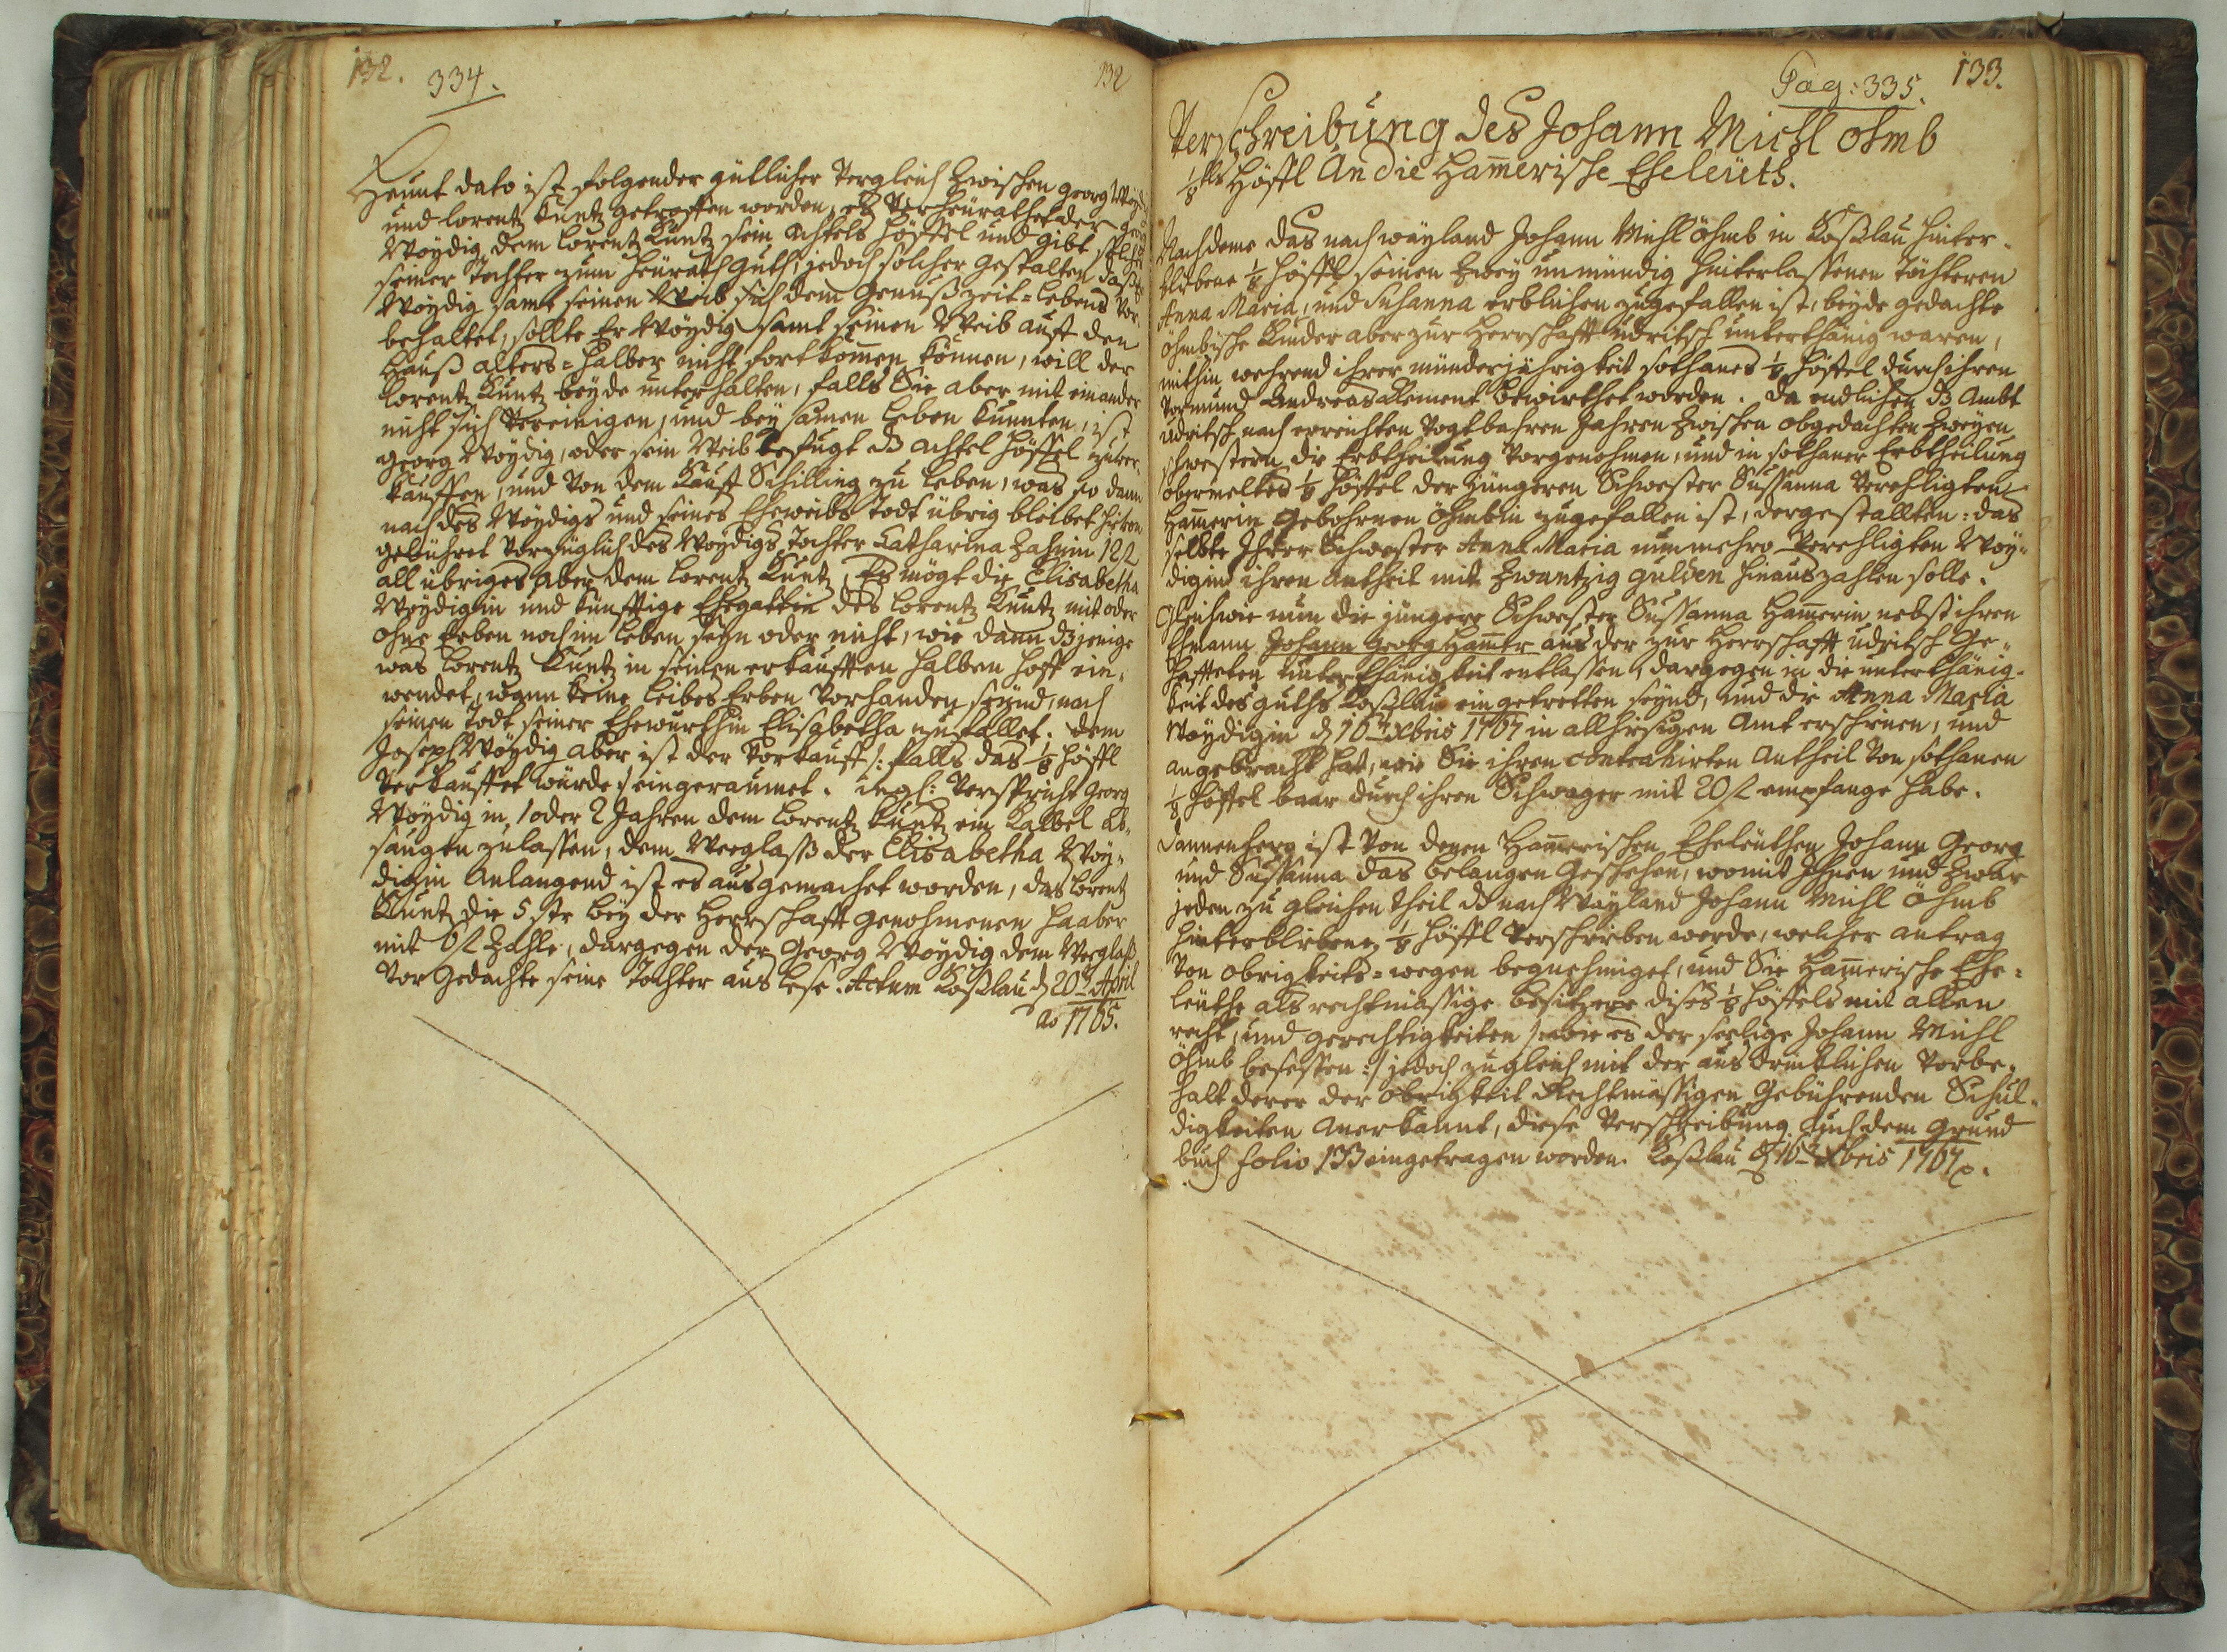 132. 334. 132
Heunt dato ist folgender gütlicher Vergleich zwischen Georg Woydig
und Lorentz Kuntz getroffen worden, es Verheürathet der Georg
Woydig dem Lorentz Kuntz sein Achtels Höffel und gibt solches
seiner Tochter zum Heürath Guth, jedoch solcher Gestalten das
Woydig samt seinen Weib sich dem Genuß zeit=lebens Vor-
behaltet, sollte Er Woydig samt seinen Weib auf den
Hauß alters=halber nicht fortkom̄en können, will der
Lorentz Kuntz beyde unterhalten, falls Sie aber mit einander
nicht sich Vereinigen, und beysam̄en leben kunnten, ist
Georg Woydig, oder sein Weib befugt d3 achtel Höffel zuver-
kauffen, und Von dem Kauff Schilling zu leben, was so dann
nach des Woydigs und seines Eheweibs Todt übrig bleibet hievon
gebühret Vorzüglich des Woydigs Tochter Catharina Zahnin 12 f
all übriges aber dem Lorentz Kuntz, Es mögt die Elisabetha
Woydigin und künfftige Ehegattin des Lorentz Kuntz mit oder
ohne Erben noch im leben seyn oder nicht, wie dann d3 jenige
was Lorentz Kuntz in seinen erkaufften halben Hoff ein-
wendet, wann keine leibes Erben Vorhanden seynd, nach
seinen Todt seiner Ehewürthin Elisabetha zufallet. dem
Joseph Woydig aber ist der Vorkauff /: falls das ⅛ Höffl
Verkauffet würde :/ eingeraumet. ingl: Verspricht Georg
Woydig in 1 oder 2 Jahren dem Lorentz Kuntz ein Kalbel ab-
säugen zulassen, dem Weeglaß der Elisabetha Woy-
digin Anlangend ist es ausgemachet worden, das Lorentz
Kuntz die 5 str bey der Herrschafft genohmenen Haaber
mit 6 f Zahle, dargegen der Georg Woydig dem Weeglaß
Vor gedachte seine Tochter aus lese. Actum Koßlau d 20t April
ao 1765.
Pag: 335. 133.
Verschreibung des Johann Michl ohmb
⅛tls Höffl An die Ham̄erische Eheleüth.
Nachdeme das nach wäyland Johann Michl Öhmb in Koßlau hinter-
bliebene ⅛ Höffl seinen zwey unmündig hinterlassenen Töchteren
Anna Maria, und Susanna erblichen zugefallen ist, beyde gedachte
Öhmbische Kinder aber zur Herrschafft Udritsch unterthänig waren,
mithin wehrend ihrer münderjährigkeit sothanes ⅛ Höffel durch ihren
Vormund Andreas Klement bewirthet worden. Da endlichen d3 Ambt
Udritsch nach erreichten Vogtbahren Jahren zwischen obgedachten zweyen
schwestern die Erbtheilung Vorgenohmen, und in sothaner Erbtheilung
obermeltes ⅛ Höffel der jüngeren Schwester Sussanna Verehligten
Ham̄erin gebohrnen Öhmbin zugefallen ist, dergestallten: das
selbte Ihrer Schwester Anna Maria nunmehro Verehligten Woy-
digin ihren Antheil mit zwantzig gulden hinauszahlen solle.
Gleichwie nun die jüngere Schwester Sussanna Ham̄erin nebst ihren
Ehmann Johann Georg Ham̄er aus der zur Herrschafft Udritsch Ge-
haffteten unterthänigkeit entlassen, dargegen in die unterthänig-
keit des guths Koßlau eingetretten seynd, und die Anna Maria
Woydigin d 16t Xbris 1767 in allhiesigen Amt erschienen, und
angebracht hat, wie Sie ihren contrahirten Antheil Von sothanen
⅛ Höffel baar durch ihren Schwager mit 20 f empfange habe.
Dannenhero ist Von denen Ham̄erischen Eheleüthen Johann Georg
und Sussanna das belangen geschehen, womit Ihnen und zwar
jeden zu gleichen theil d3 nach Wäyland Johann Michl Öhmb
hinterbliebene ⅛ Höffl Verschrieben werde, welcher antrag
Von obrigkeits=wegen begnehmiget, und Sie Ham̄erische Ehe-
leüthe als rechtmässige besitzere dises ⅛ Höffels mit allen
recht, und gerechtigkeiten /: wie es der seelige Johann Michl
Öhmb besessen :/ jedoch zugleich mit der ausdrücklichen Vorbe-
halt derer der Obrigkeit Rechtmässigen Gebührenden Schul-
digkeiten Anerkannt, diese Verschreibung Auch dem Grund
buch folio 133 eingetragen worden. Koßlau d 16t Xbris 1767.